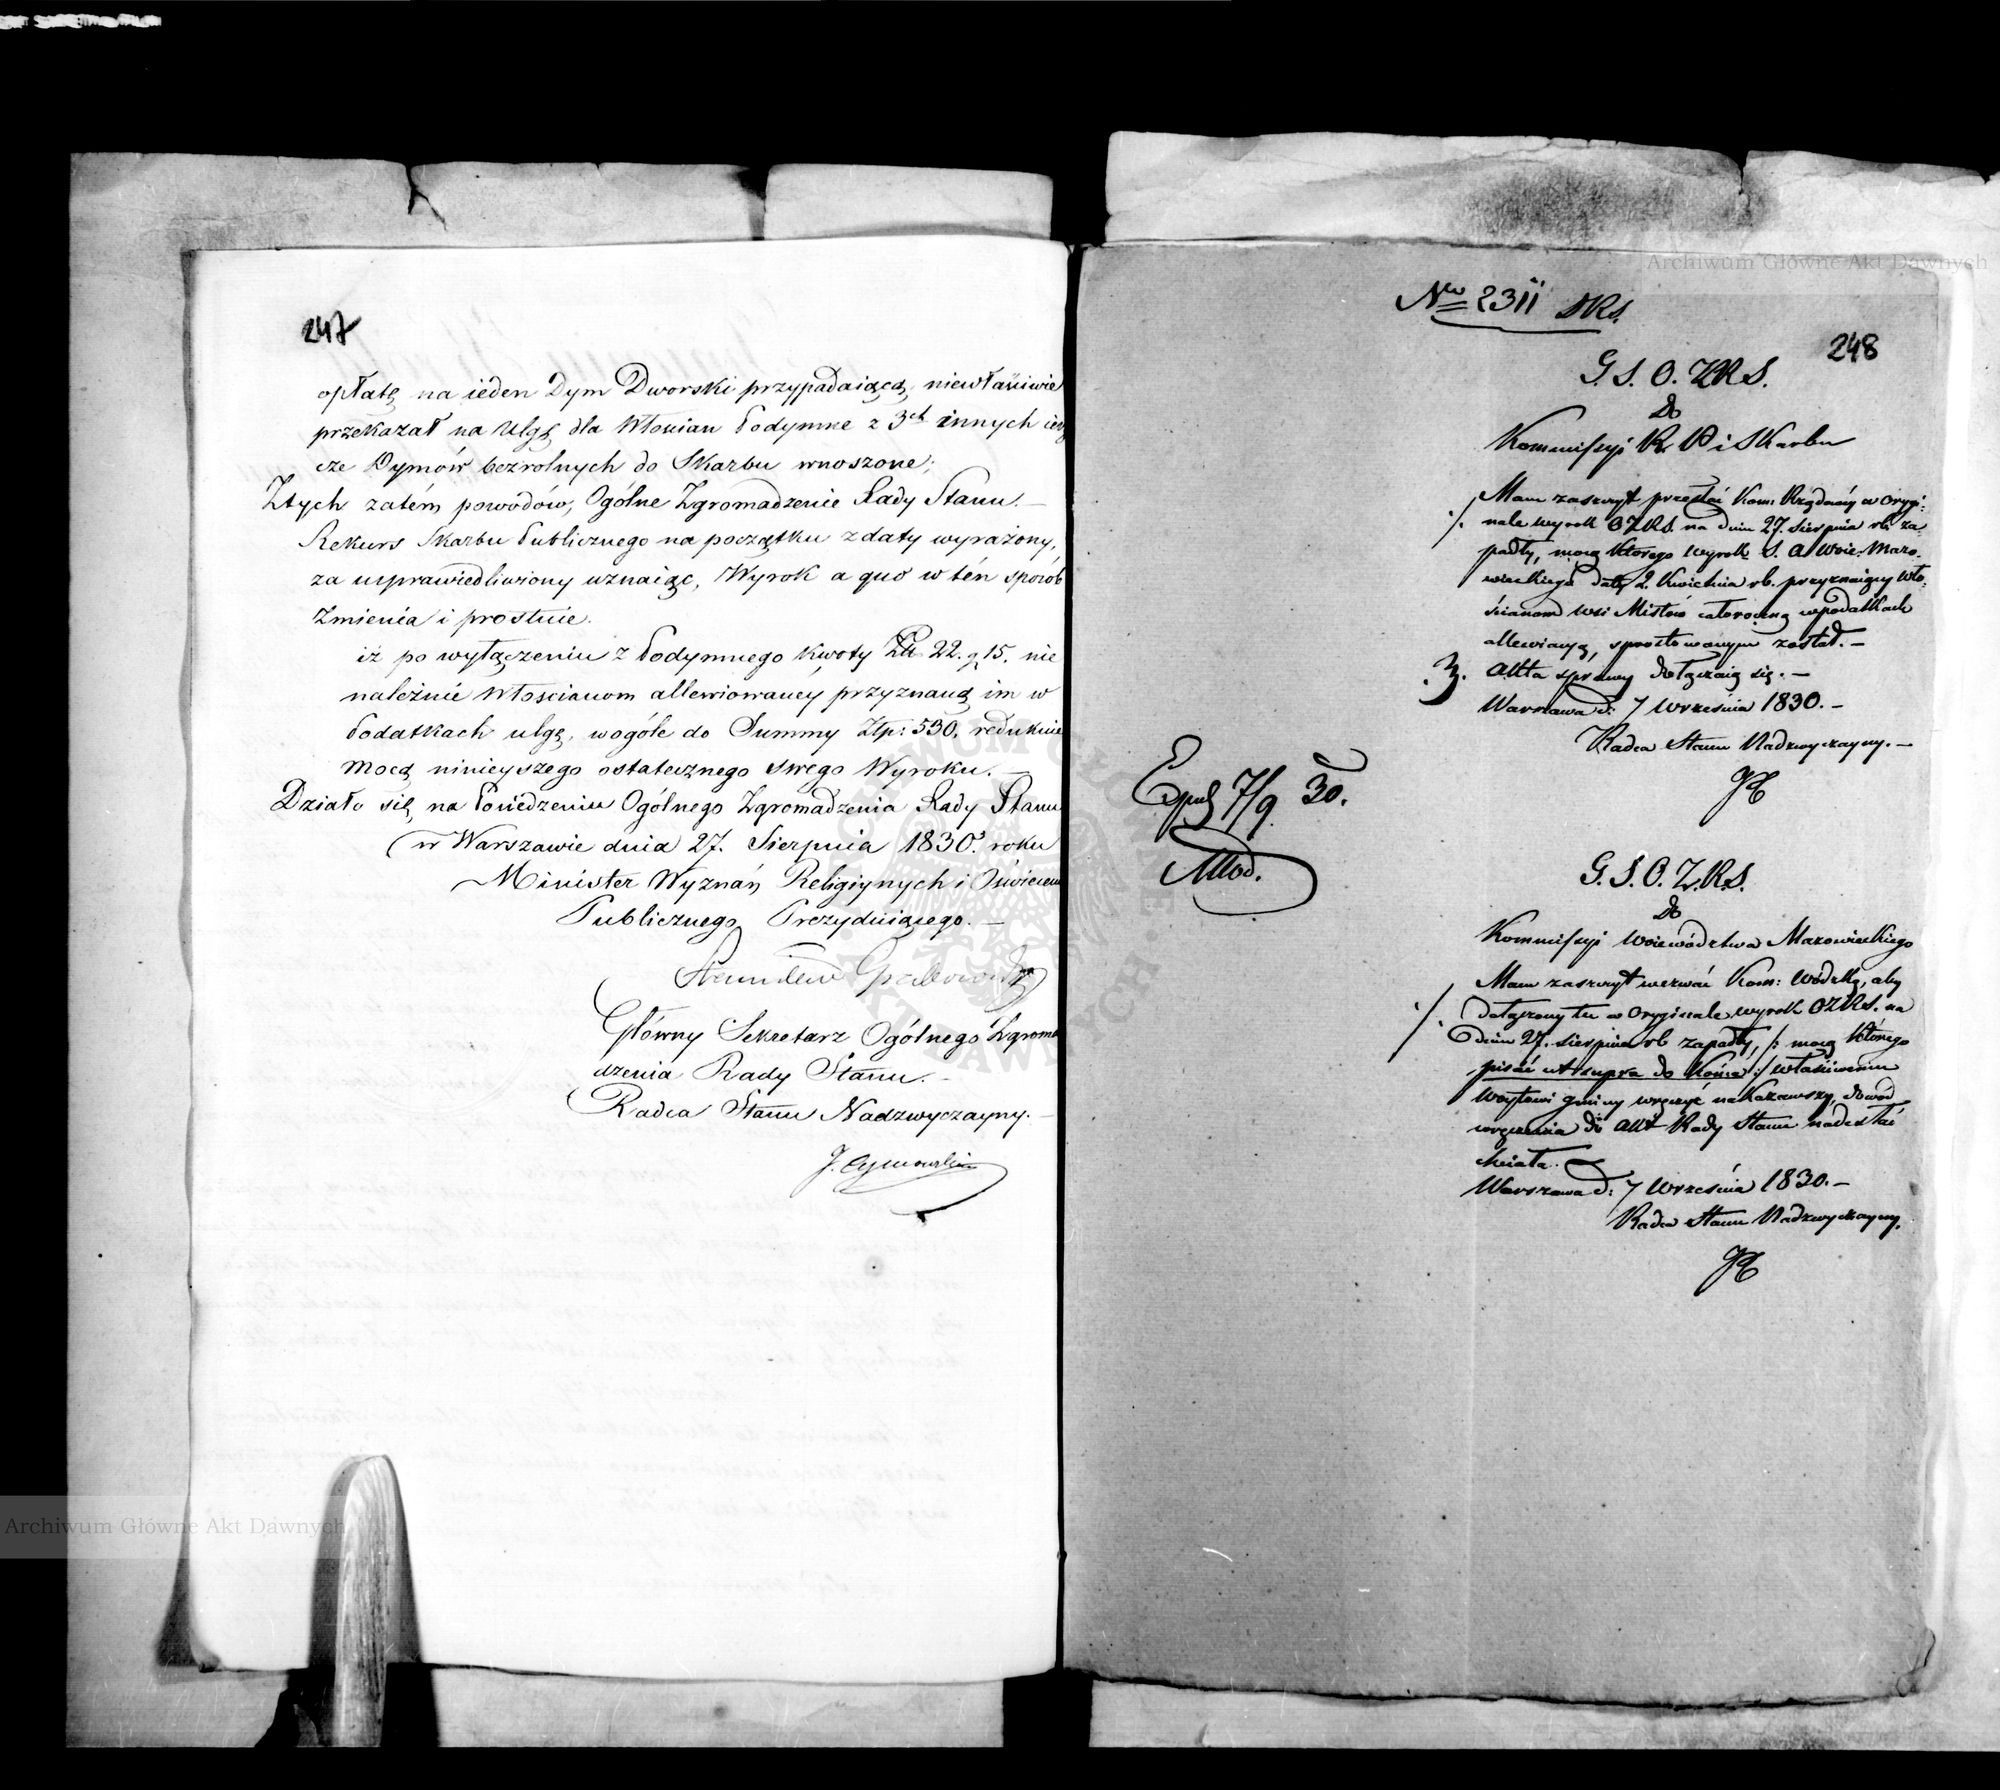 247
opłatę na ieden Dym Dworski przypadaiącą, niewłaściwie
przekazał na ulgę dla Włościan Podymne z 3ch innych iesz
cze Dymów bezrolnych do Skarbu wnoszone;
Ztych zatém powodów, Ogólne Zgromadzenie Rady Stanu.—
Rekurs Skarbu Publicznego na początku z daty wyrażony,
za usprawiedliwiony uznaiąc, Wyrok a quo w tén sposób
Zmienia i prostuie.
iż po wyłączeniu z Podymnego kwoty 22. g 15. nie
należnie Włościanom allewiowanéy przyznaną im w
Podatkach ulgę, wogóle do Summy Złp: 530. redukuie
mocą ninieyszego ostatecznego swego Wyroku.—
Działo się na Posiedzeniu Ogólnego Zgromadzenia Rady Stanu
w Warszawie dnia 27. Sierpnia 1830. roku
Minister Wyznań Religiynych i Oświecen
Publicznego Prezyduiącego.—
Stanisław Grabowski
Główny Sekretarz Ogólnego Zgroma
dzenia Rady Stanu.—
Radca Stanu Nadzwyczayny.—
J.
No 2311
248
G. S. O. Z.R.S.
do
Kommissyi R. P i Skarbu
Mam zaszczyt przesłać Kom: Rządowéy w Orygi:
nale wyrok OZRS. na dniu 27. Sierpnia rb. za
padły, mocą którego wyrok S. A. Woie: Mazo.
wieckiego daty 2. Kwietnia rb. przyznaiący Wło:
ścianom wsi Mistów całoroczną w podatkach
allewiacyą, sprostowanym został.—
3. Akta sprawy dołączaią się.—
Warszawa d: 7 Września 1830.—
Radca Stanu Nadzwyczayny.—
JC
Exped 7/9 30.
G. S. O. Z.R.S.
do
Kommissyi Województwa Mazowieckiego
Mam zaszczyt wezwać Kom: Wódzką, aby
dołączony tu w Oryginale wyrok OZRS. na
dniu 27. Sierpnia rb zapadły, /: mocą którego
pisać ut supra do końca :/ właściwemu
Woytowi gminy wręczyć nakazawszy, dowód
wręczenia do Akt Rady Stanu nadesłać
chciała.
Warszawa d: 7 Września 1830.—
Radca Stanu Nadzwyczayny.
JC
Archiwum Główne Akt Dawnych
Archiwum Główne Akt Dawnych